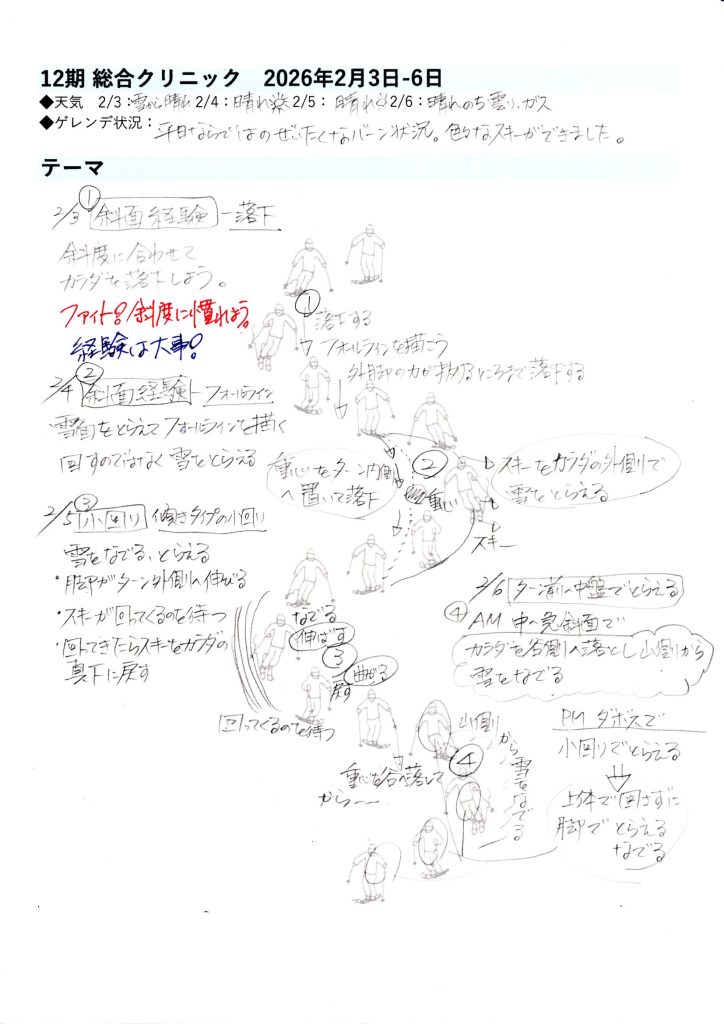 12期 総合クリニック 2026年2月3日-6日
◆天気 2/3:雪から晴れ 2/4:晴れ 2/5:晴れ 2/6:晴れのち曇り、ガス
◆ゲレンデ状況:平日ならではのぜいたくなバーン状況。色々なスキーができました。
テーマ
①
2/3 斜面経験-落下
斜度に合わせて
カラダを落下しよう。
ファイト!斜度に慣れよう。
経験は大事!
①落下する
フォールラインを描こう
外脚の力が抜けるところまで落下する
②
2/4 斜面経験-フォールライン
雪面をとらえてフォールラインを描く
回すのではなく雪をとらえる
重心をターン内側
へ置いて落下
②
重心
スキー
スキーをカラダの外側で
雪をとらえる
③
2/5 小回り 傾きタイプの小回り
雪をなでる、とらえる
・脚がターン外側へ伸びる
・スキーが回ってくるのを待つ
・回ってきたらスキーをカラダの
真下に戻す
なでる
伸ばす
③
曲げる
戻す
回ってくるのを待つ
2/6 ターン前〜中盤でとらえる
④ AM 中〜急斜面で
カラダを谷側へ落とし山側から
雪をなでる
PM ダボスで
小回りでとらえる
上体で回さずに
脚でとらえる
なでる
山側
から雪をなでる
④
重心を谷へ落として
から〜